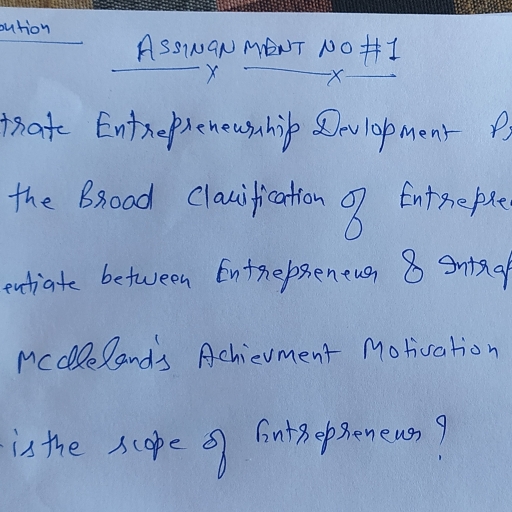 bution
ASSINGNMENT NO #1
trate Entrepreneurship Devlopment Pr
the Broad Classification of Entrepre
entiate between Entrepreneur & Intrap
McClleland's Achievment Motivation
is the scope of Entrepreneur?